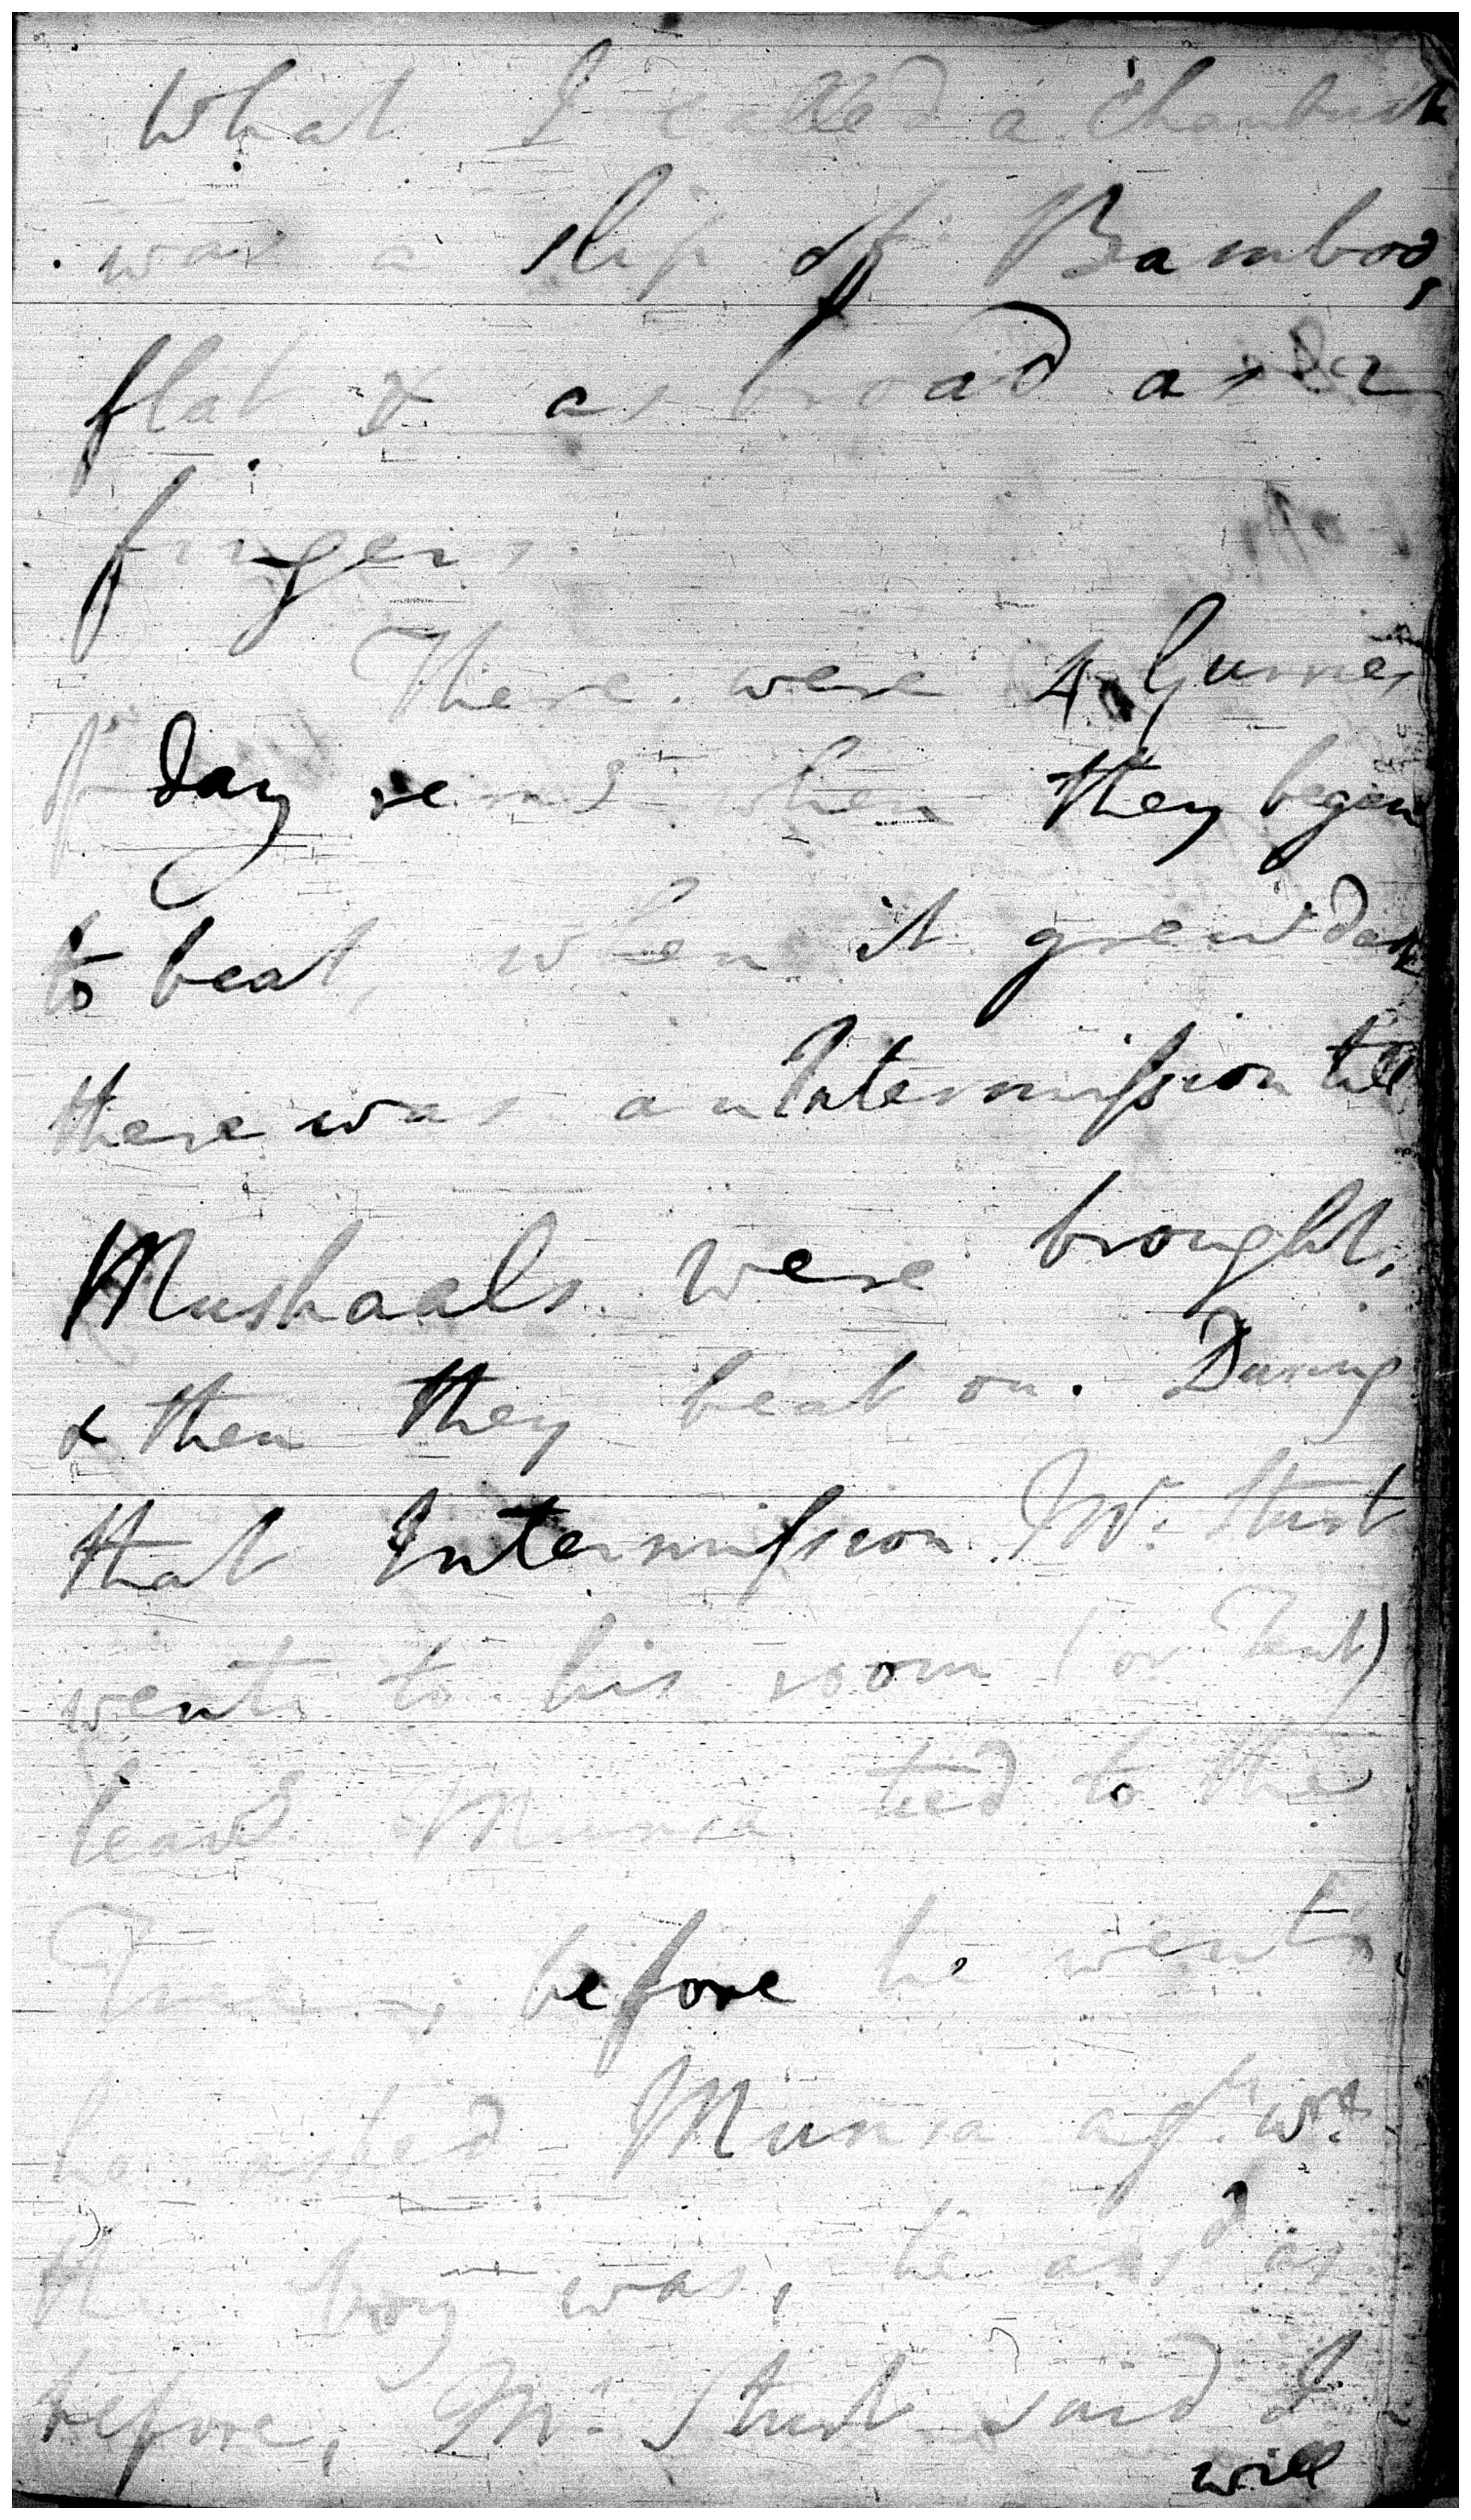 What I called a Chambuck
was a slip of Bamboo,
flat & as broad as 2
fingers.
There were 4 Gurries
day rem.g when they began
to beat, when it grew dark
there was an Intermission till
Mushaals were brought,
& then they beat on. During
that Intermission Mr. Sturt
went to his room (or Tent)
leavg Munsa tied to the
Tree, before he went,
he asked Munsa ag.n w.re
the boy was, he ansd as
before, Mr. Sturt said I
will